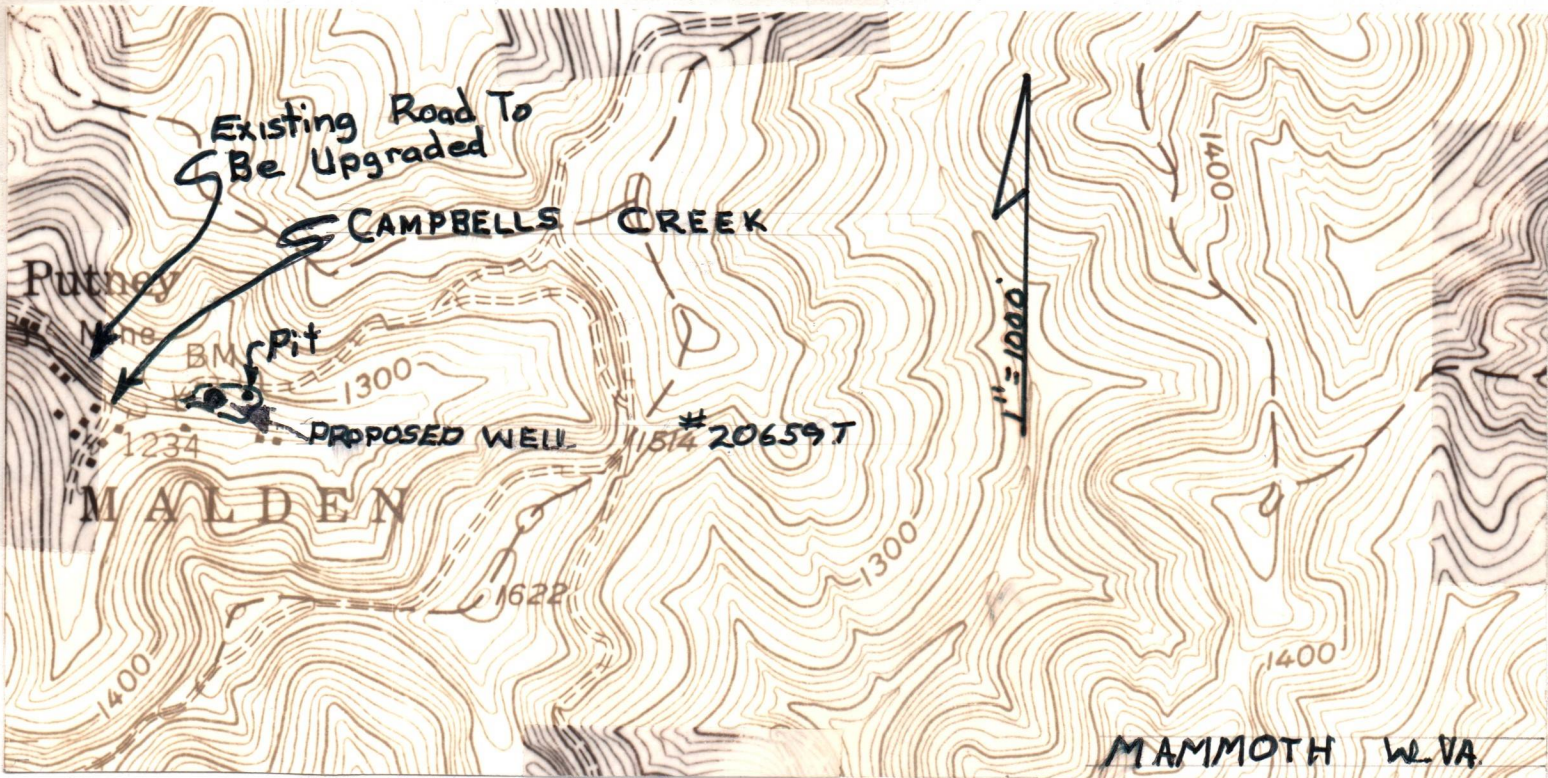 Existing Road To
Be Upgraded
1400
CAMPBELLS CREEK
Putney
Mine
BM
Pit
1300
1" = 1000'
PROPOSED WELL
1514
#20659T
1234
MALDEN
1300
1622
1400
1400
MAMMOTH W.VA.